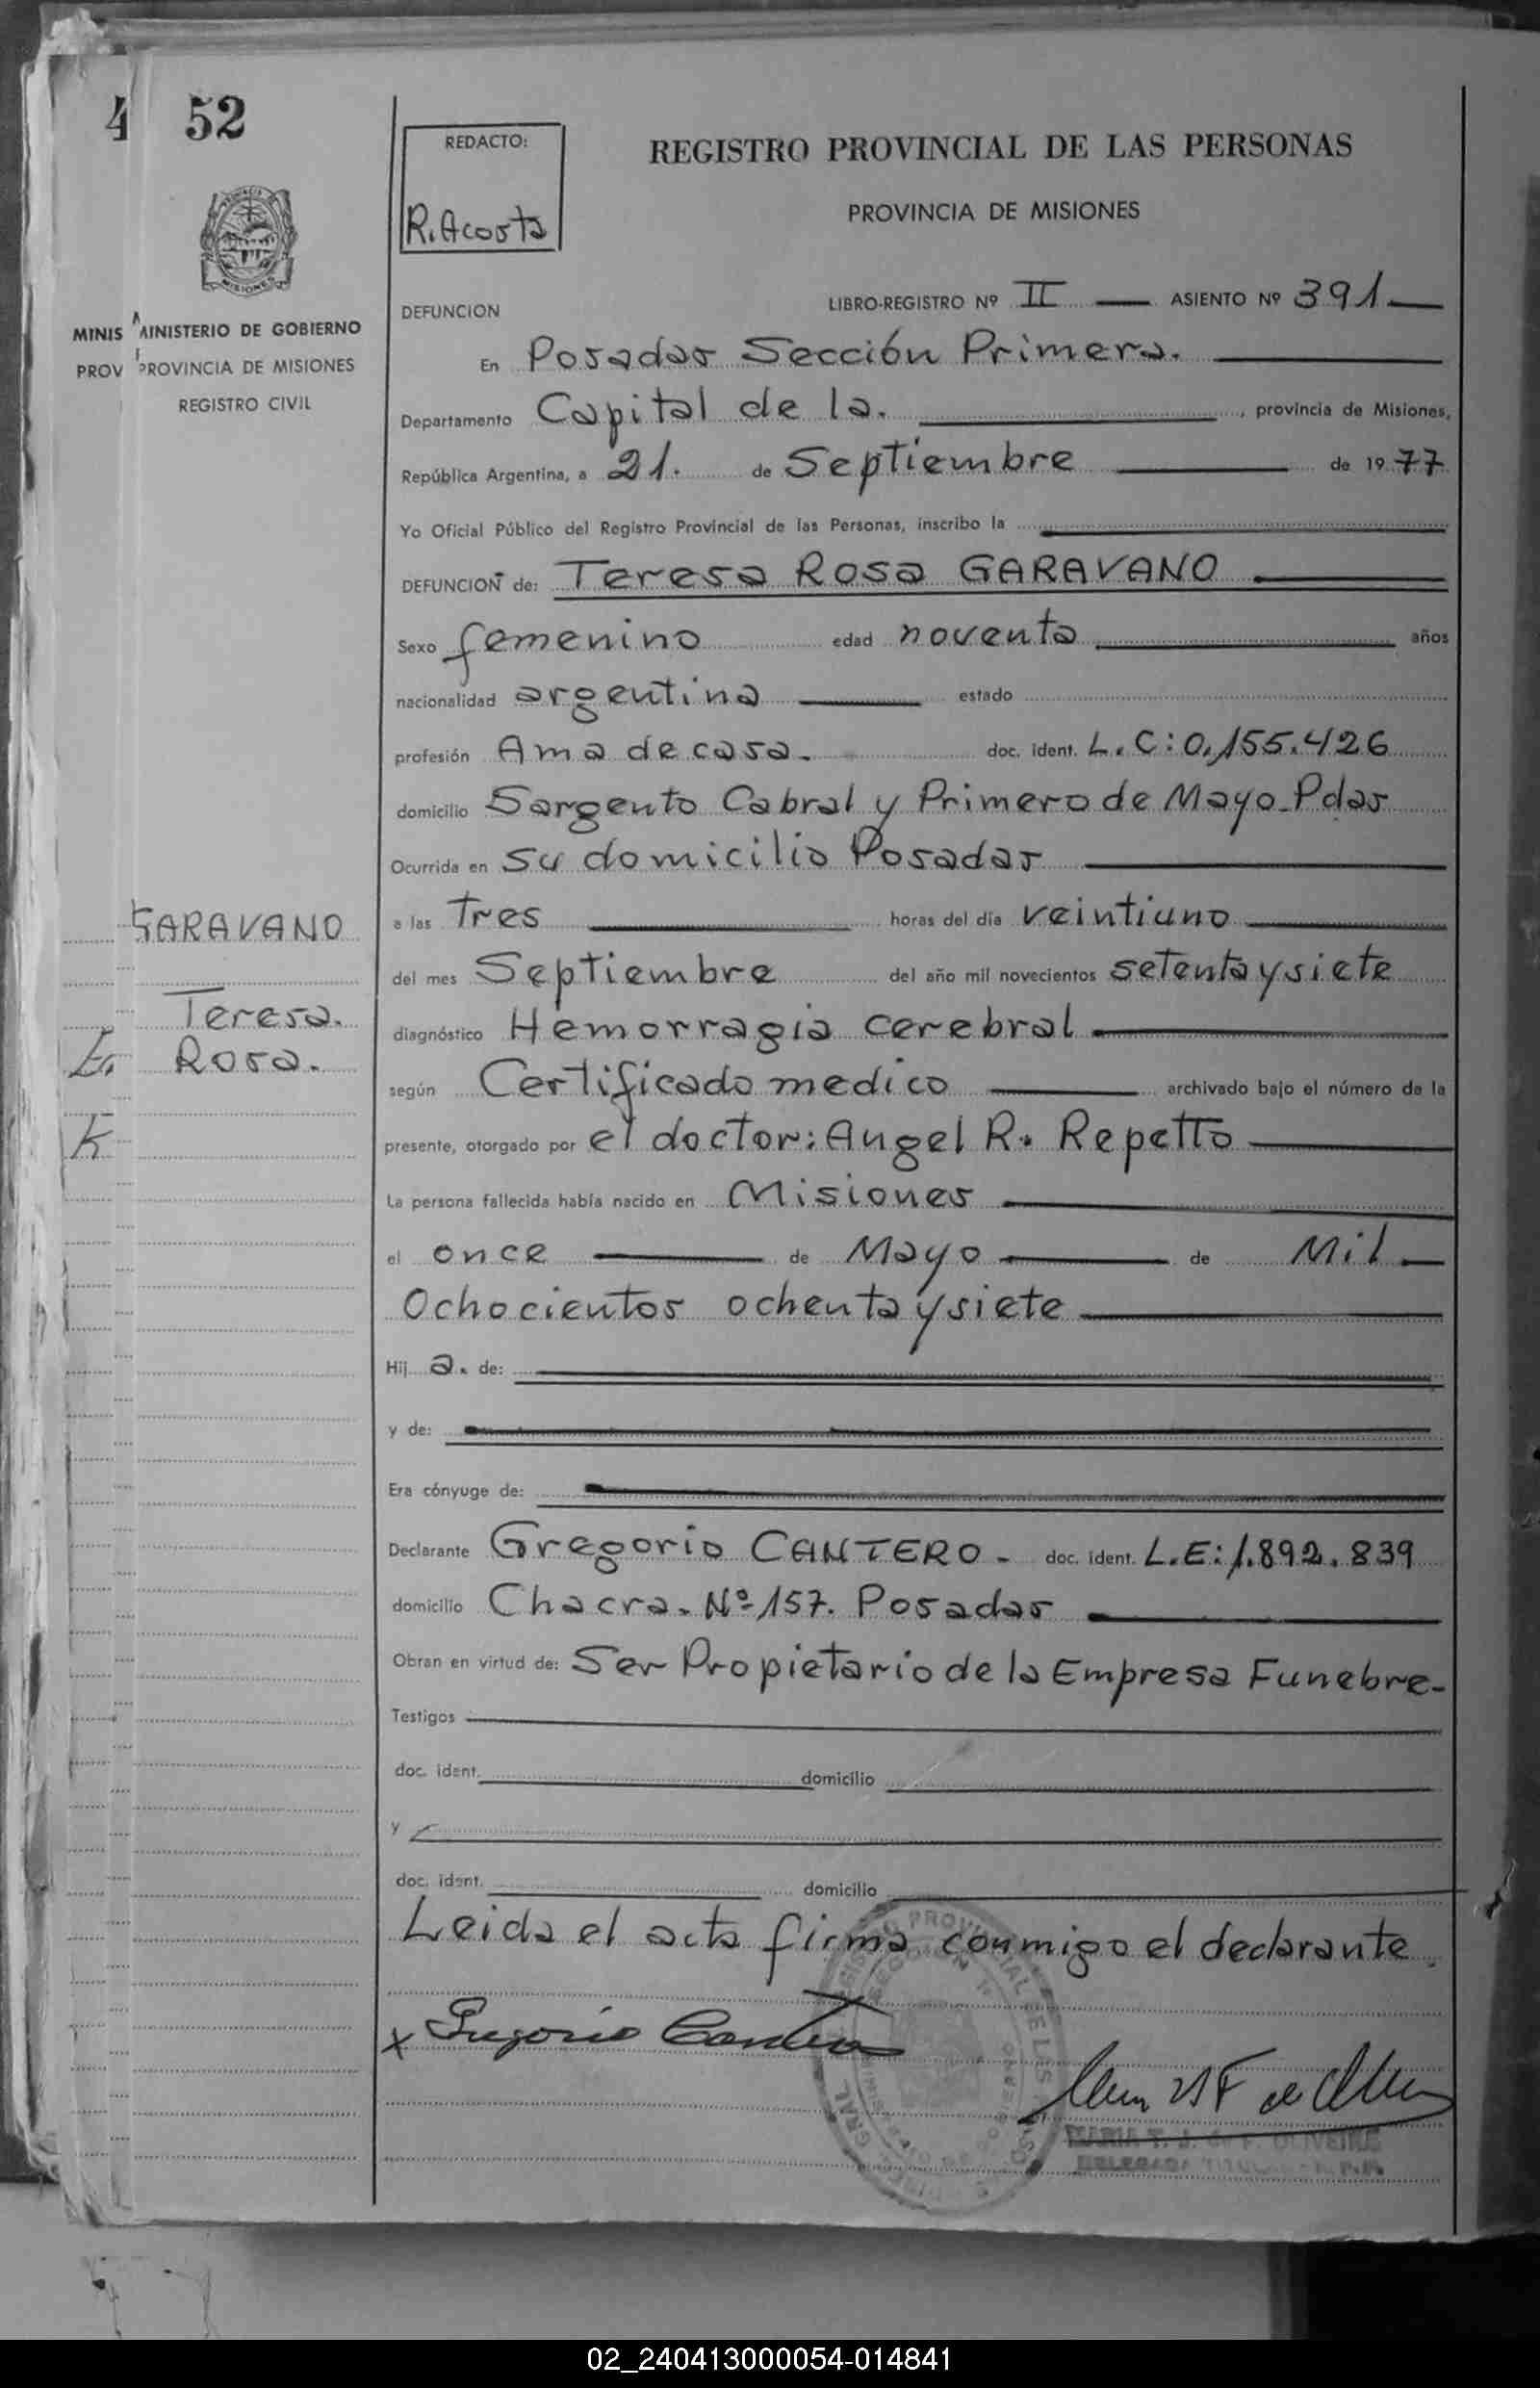 4 52
REDACTO:
R. Acosta
REGISTRO PROVINCIAL DE LAS PERSONAS
PROVINCIA DE MISIONES
MISIONES
MINIS MINISTERIO DE GOBIERNO
PROV PROVINCIA DE MISIONES
REGISTRO CIVIL
DEFUNCION LIBRO-REGISTRO Nº II ASIENTO Nº 391
En Posadas Sección Primera.
Departamento Capital de la. , provincia de Misiones,
República Argentina, a 21. de Septiembre de 1977
Yo Oficial Público del Registro Provincial de las Personas, inscribo la
DEFUNCION de: Teresa Rosa GARAVANO
Sexo femenino edad noventa años
nacionalidad argentina estado
profesión Ama de casa. doc. ident. L. C: 0,155.426
domicilio Sargento Cabral y Primero de Mayo-Pdas
Ocurrida en su domicilio Posadas
GARAVANO
Teresa.
Rosa.
a las Tres horas del día veintiuno
del mes Septiembre del año mil novecientos setenta y siete
diagnóstico Hemorragia cerebral
según Certificado medico archivado bajo el número de la
presente, otorgado por el doctor: Angel R. Repetto
La persona fallecida había nacido en Misiones
el once de Mayo de Mil
Ochocientos ochenta y siete
Hij a. de:
y de:
Era cónyuge de:
Declarante Gregorio CANTERO- doc. ident. L.E: 1.892.839
domicilio Chacra. Nº 157. Posadas
Obran en virtud de: Ser Propietario de la Empresa Funebre-
Testigos
doc. ident. domicilio
y
doc. ident. domicilio
Leida el acta firma conmigo el declarante
x Gregorio Cantero
MARIA T. J. de F. OLIVEIRA
DELEGADA TITULAR
02_240413000054-014841